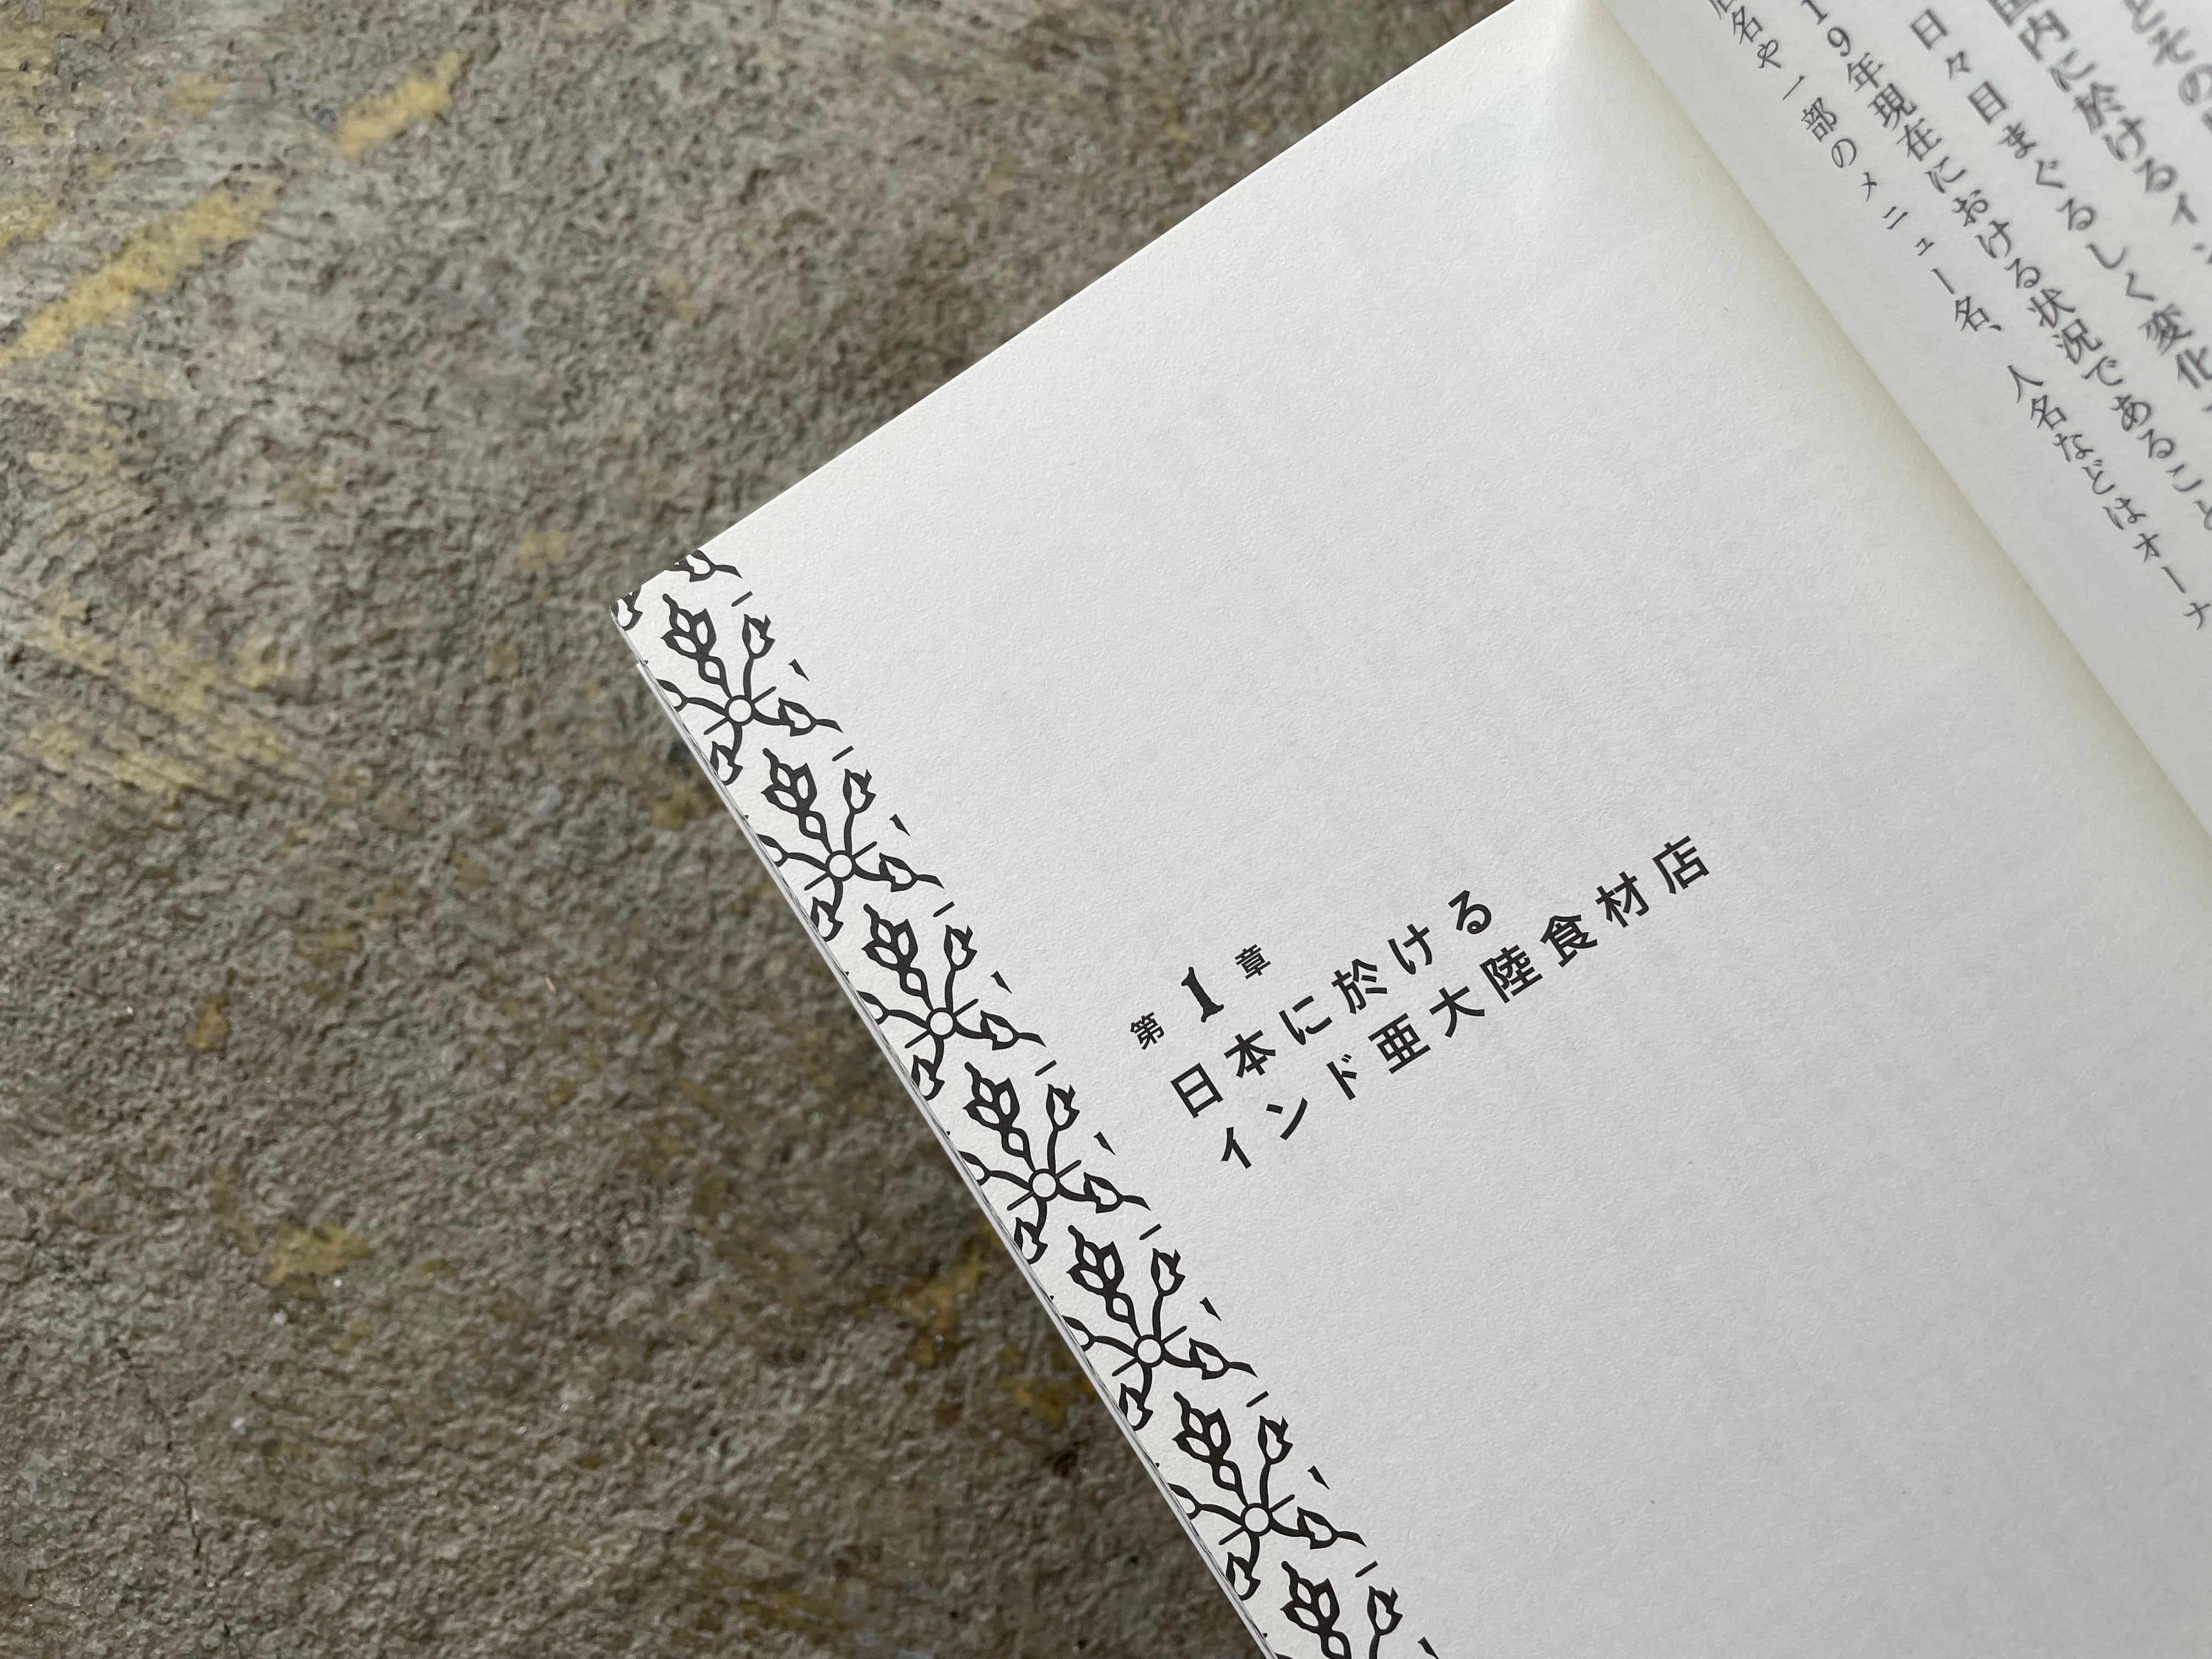 とその
国内に於けるイン
日々目まぐるしく変化
19年現在における状況であること
店名や一部のメニュー名、人名などはオーナ
第1章
日本に於ける
インド亜大陸食材店